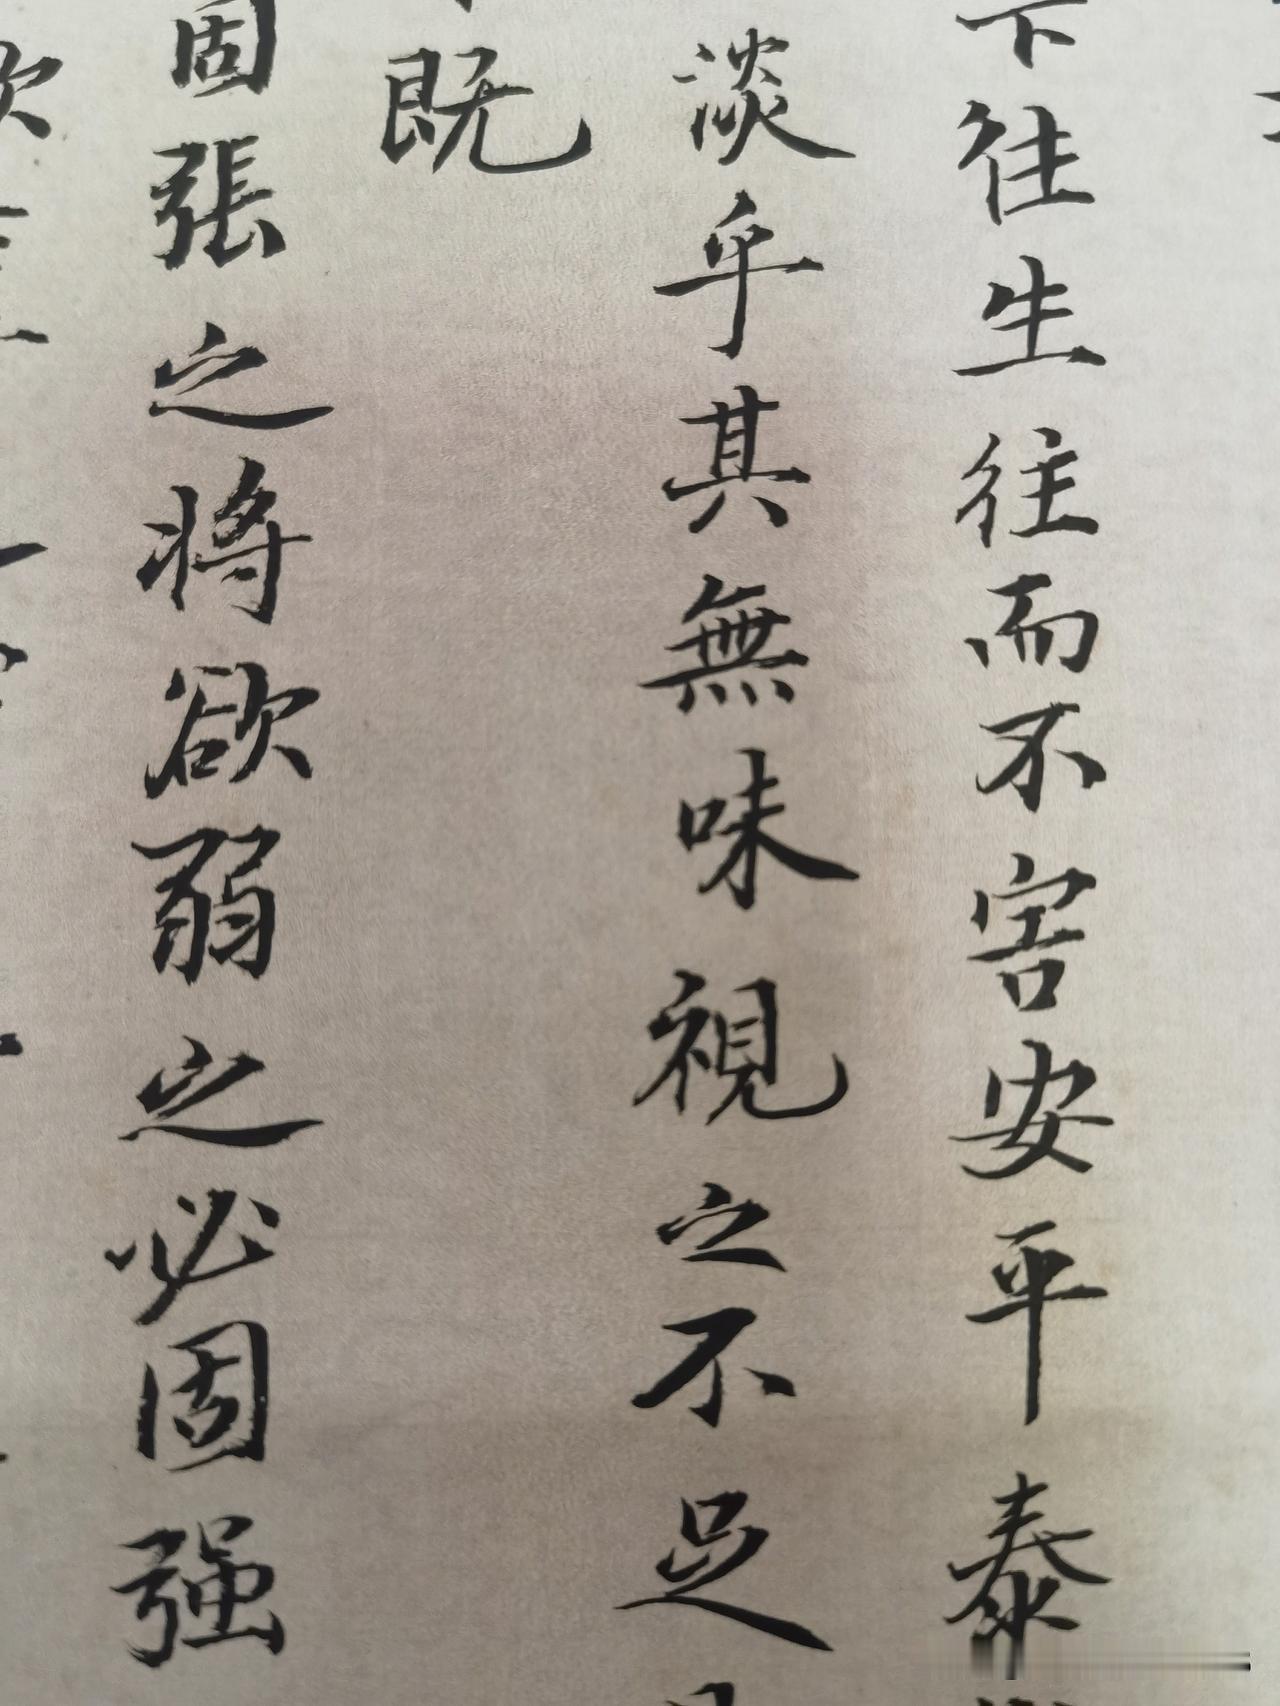 下往生往而不害安平泰
淡乎其無味視之不足
既
固張之將欲弱之必固强
欲